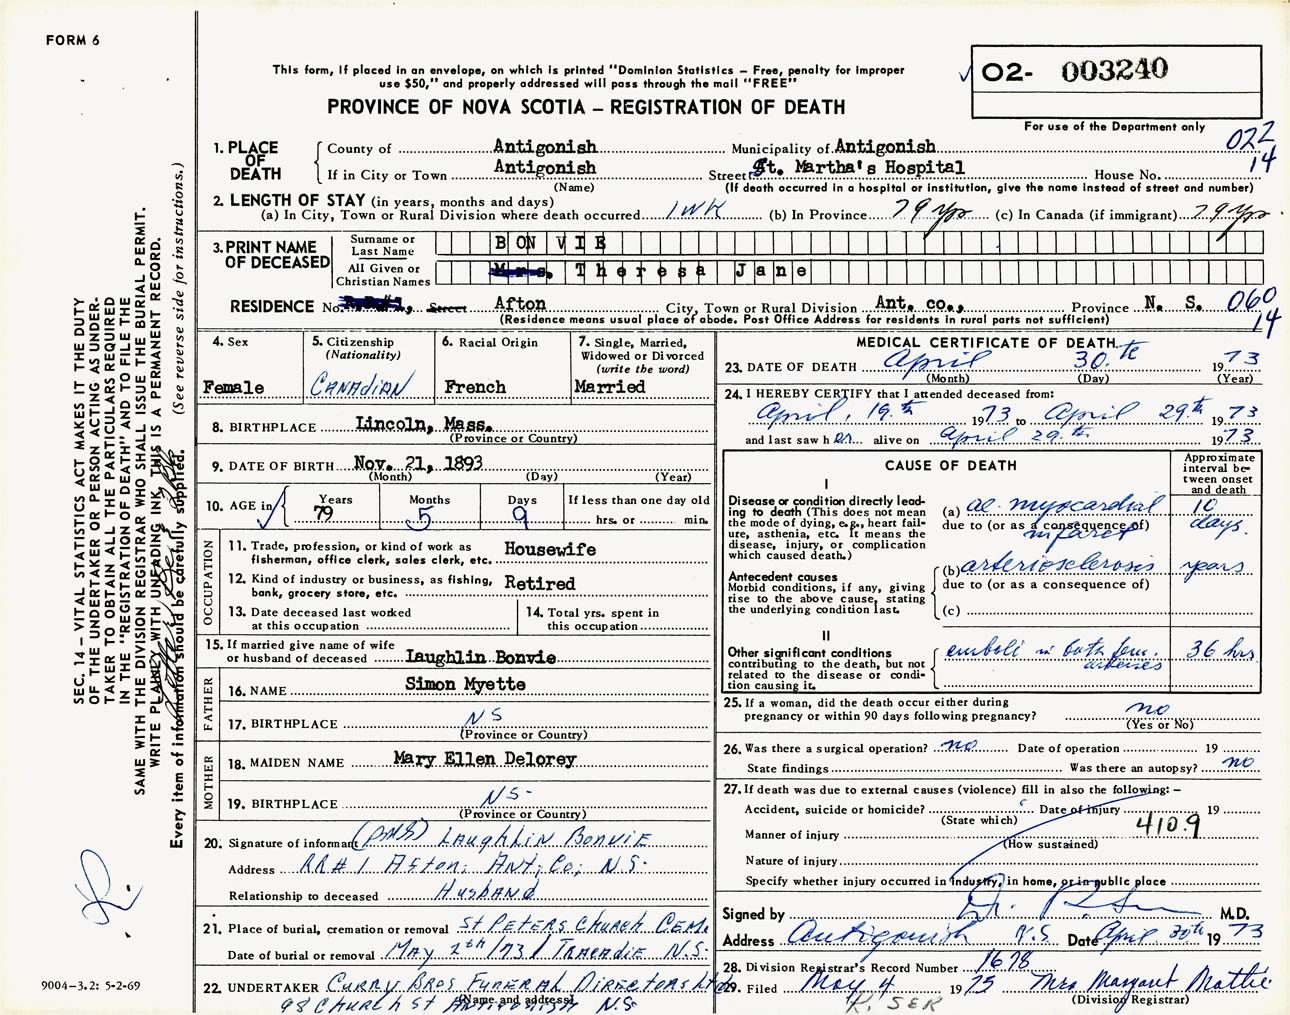 FORM 6
This form, if placed in an envelope, on which is printed "Dominion Statistics – Free, penalty for improper
use $50," and properly addressed will pass through the mail "FREE"
O2- 003240
PROVINCE OF NOVA SCOTIA – REGISTRATION OF DEATH
For use of the Department only
022
14
1. PLACE OF DEATH
County of Antigonish Municipality of Antigonish
If in City or Town Antigonish Street St. Martha's Hospital House No.
(Name) (If death occurred in a hospital or institution, give the name instead of street and number)
2. LENGTH OF STAY (in years, months and days)
(a) In City, Town or Rural Division where death occurred 1 WK (b) In Province 79 Yrs (c) In Canada (if immigrant) 79 Yrs.
3. PRINT NAME OF DECEASED
Surname or Last Name BONVIE
All Given or Christian Names Mrs. Theresa Jane
RESIDENCE No. R.R#1, Street Afton City, Town or Rural Division Ant. co., Province N. S. 060
14
(Residence means usual place of abode. Post Office Address for residents in rural parts not sufficient)
4. Sex
Female
5. Citizenship
(Nationality)
CANADIAN
6. Racial Origin
French
7. Single, Married,
Widowed or Divorced
(write the word)
Married
8. BIRTHPLACE Lincoln, Mass.
(Province or Country)
9. DATE OF BIRTH Nov. 21, 1893
(Month) (Day) (Year)
10. AGE in
Years Months Days If less than one day old
79 5 9 hrs. or min.
OCCUPATION
11. Trade, profession, or kind of work as
fisherman, office clerk, sales clerk, etc. Housewife
12. Kind of industry or business, as fishing,
bank, grocery store, etc. Retired
13. Date deceased last worked
at this occupation
14. Total yrs. spent in
this occupation
15. If married give name of wife
or husband of deceased Laughlin Bonvie
FATHER
16. NAME Simon Myette
17. BIRTHPLACE NS
(Province or Country)
MOTHER
18. MAIDEN NAME Mary Ellen Delorey
19. BIRTHPLACE NS-
(Province or Country)
20. Signature of informant Laughlin Bonvie
Address RR#1 Afton, Ant, Co, N.S.
Relationship to deceased Husband
21. Place of burial, cremation or removal St Peters Church Cem.
Date of burial or removal May 2th/73 / Tracadie N.S.
22. UNDERTAKER Curry Bros Funeral Directors Ltd
(Name and address)
98 Church St Antigonish N.S
MEDICAL CERTIFICATE OF DEATH
23. DATE OF DEATH April 30.th 1973
(Month) (Day) (Year)
24. I HEREBY CERTIFY that I attended deceased from:
April, 19.th 1973 to April 29th 1973
and last saw her alive on April 29.th 1973
CAUSE OF DEATH
Approximate
interval be-
tween onset
and death
I
Disease or condition directly lead-
ing to death (This does not mean
the mode of dying, e.g., heart fail-
ure, asthenia, etc. It means the
disease, injury, or complication
which caused death.)
(a) ac. myocardial infarct 10 days.
due to (or as a consequence of)
Antecedent causes
Morbid conditions, if any, giving
rise to the above cause, stating
the underlying condition last.
(b) arteriosclerosis years
due to (or as a consequence of)
(c)
II
Other significant conditions
contributing to the death, but not
related to the disease or condi-
tion causing it.
emboli in both fem. arteries 36 hrs
25. If a woman, did the death occur either during
pregnancy or within 90 days following pregnancy? no
(Yes or No)
26. Was there a surgical operation? no Date of operation 19
State findings Was there an autopsy? no
27. If death was due to external causes (violence) fill in also the following: –
Accident, suicide or homicide? Date of injury 19
(State which)
Manner of injury 410.9
(How sustained)
Nature of injury
Specify whether injury occurred in industry, in home, or in public place
Signed by Dr. M.D.
Address Antigonish N.S. Date April 30th 1973
28. Division Registrar's Record Number 1678
29. Filed May 4 1973 Mrs Margaret Mattie
(Division Registrar)
R. SER
SEC. 14 – VITAL STATISTICS ACT MAKES IT THE DUTY
OF THE UNDERTAKER OR PERSON ACTING AS UNDER-
TAKER TO OBTAIN ALL THE PARTICULARS REQUIRED
IN THE "REGISTRATION OF DEATH" AND TO FILE THE
SAME WITH THE DIVISION REGISTRAR WHO SHALL ISSUE THE BURIAL PERMIT.
WRITE PLAINLY WITH UNFADING INK THIS IS A PERMANENT RECORD.
Every item of information should be carefully supplied. (See reverse side for instructions.)
9004-3.2: 5-2-69